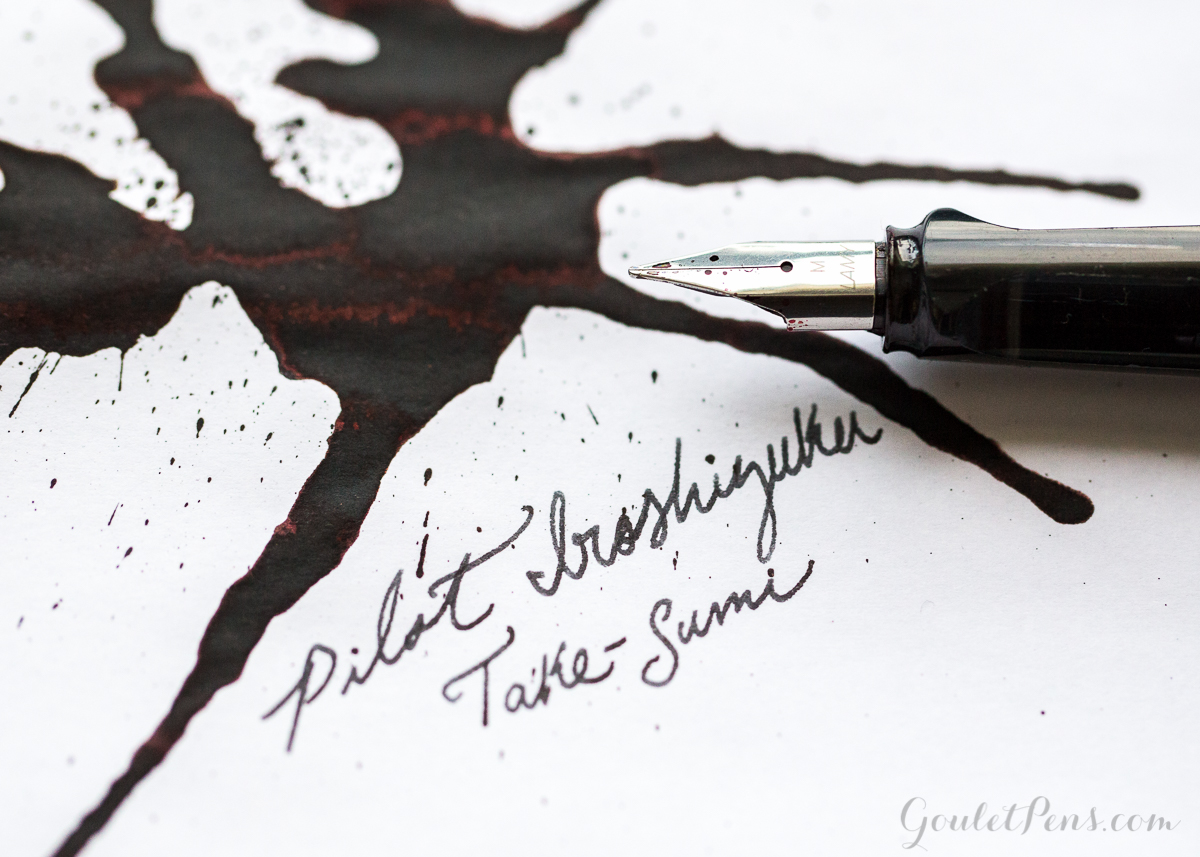 M
LAMY
Pilot Iroshizuku
Take-Sumi
GouletPens.com